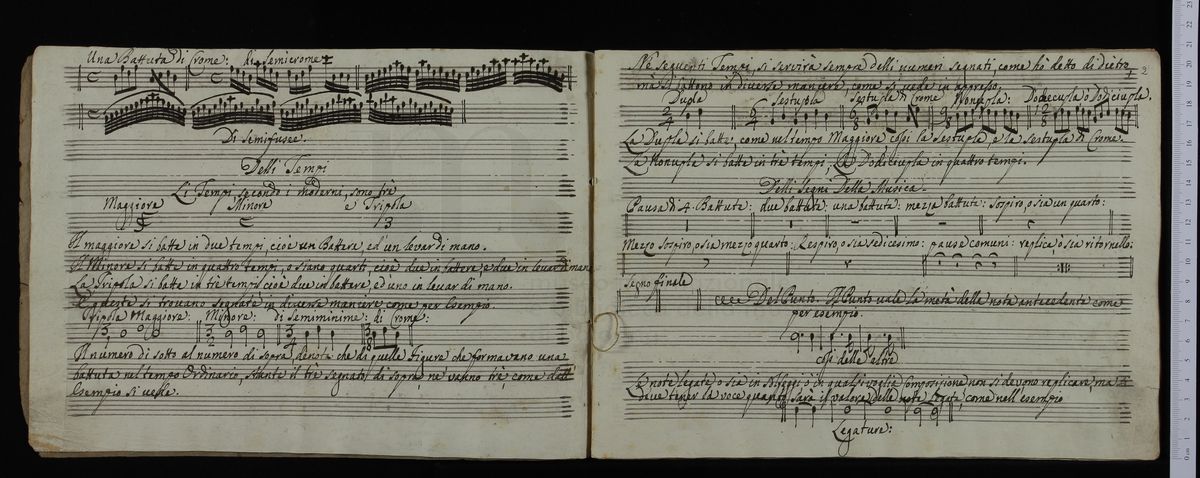 Una Battuta di Crome: di Semicrome
Di Semifusee.
Delli Tempi
Li Tempi secondo i moderni, sono trè
Maggiore Minore e Tripola
Il maggiore si batte in due tempi, cioè un Battere, ed'un levar di mano.
Il Minore si batte in quattro tempi, o siano quarti, cioè due in battere e due in levar di mano
La Tripola si batte in trè tempi cioè due in battere, ed'uno in levar di mano.
E queste si trovano segnate in diverse maniere come per Esempio.
Tripola Maggiore: Minore: di Semiminime: di Crome:
Il numero di sotto al numero di sopra denota che di quelle Figure che formavano una
battuta nel tempo Ordinario, stante il trè segnato di sopra ne vanno trè come dall'
Esempio si vede.
2
Ne' seguenti Tempi, si servirà sempre delli numeri segnati, come hò detto di dietro
mà si battono in diverse maniere, come si vede in appresso.
Dupla Sestupla Sestupla di Crome Nonupla: Dodecupla o Dodiciupla.
La Dupla si batte, come nel tempo Maggiore così la Sestupla, e la Sestupla di Crome.
La Nonupla si batte in trè tempi, La Dodiciupla in quattro tempi.
Delli Segni Della Musica.
Pausa di 4. Battute: due battute: una battuta: mezza battuta: Sospiro, o sia un quarto:
Mezzo Sospiro, o sia mezzo quarto: Respiro, o sia sedicesimo: pause comuni: replica, ò sia ritornello:
Segno finale
Del Punto. Il Punto vale la metà della nota antecedente come
per esempio.
così delle altre
Le note legate, o sia in Solfeggi ò in qualsivoglia Composizione non si devono replicare, ma si
deve tener la voce quanto sarà il valore delle note legate, come nell'esempio
Legature: